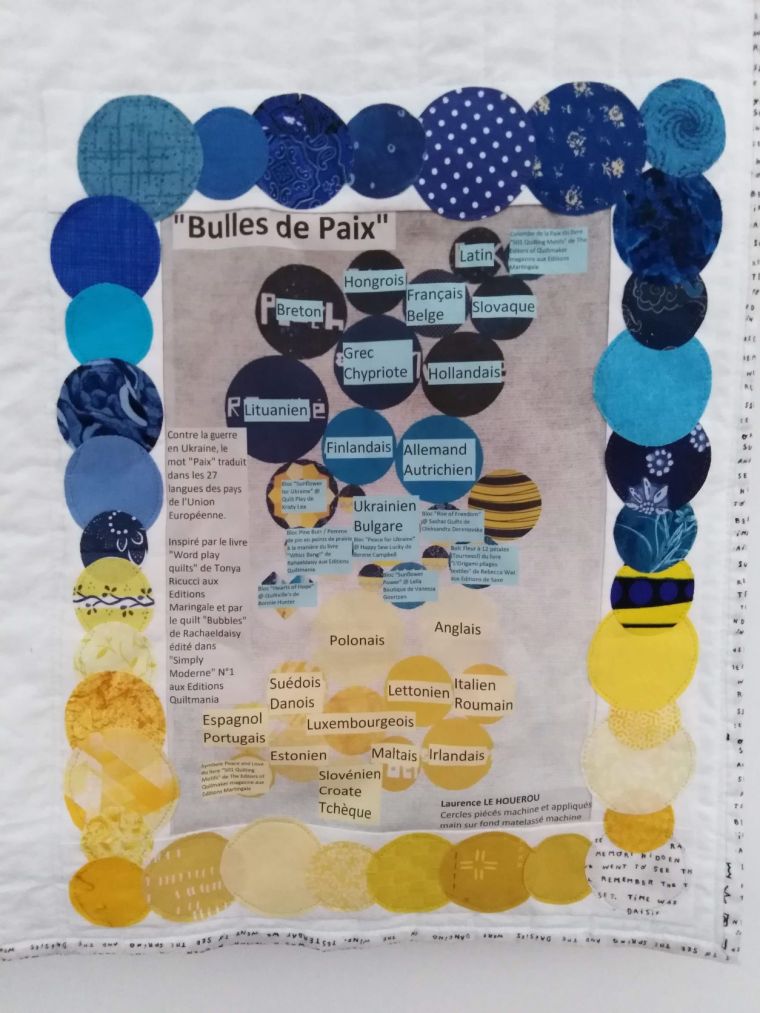 "Bulles de Paix"
Latin
Colombe de la Paix du livre
"501 Quilting Motifs" de The
Editors of Quiltmaker
magazine aux Editions
Martingale
Hongrois
Breton
Français
Belge
Slovaque
Grec
Chypriote
Hollandais
Lituanien
Finlandais
Allemand
Autrichien
Contre la guerre
en Ukraine, le
mot "Paix" traduit
dans les 27
langues des pays
de l'Union
Européenne.
Inspiré par le livre
"Word play
quilts" de Tonya
Ricucci aux
Editions
Maringale et par
le quilt "Bubbles"
de Rachaeldaisy
édité dans
"Simply
Moderne" N°1
aux Editions
Quiltmania
Bloc "Sunflower
for Ukraine" @
Quilt Play de
Kristy Lea
Ukrainien
Bulgare
Bloc "Rise of Freedom"
@ Sashas Quilts de
Bloc Pine Burr / Pomme
de pin en points de prairie
à la manière du livre
"Whizz Bang!" de
Rahaeldaisy aux Editions
Quiltmania
Bloc "Peace for Ukraine"
@ Happy Sew Lucky de
Campbell
Bloc Fleur à 12 pétales
(Tournesol) du livre
"L'Origami pliages
textiles" de Rebecca Wat
aux Editions de Saxe
Bloc "Hearts of Hope"
@ Quiltville's de
Bonnie Hunter
Bloc "Sunflower
Power" @ Lella
Boutique de Vanessa
Goertzen
Polonais
Anglais
Suédois
Danois
Lettonien
Italien
Roumain
Espagnol
Portugais
Luxembourgeois
Estonien
Maltais
Irlandais
Symbole Peace and Love
du livre "501 Quilting
Motifs" de The Editors of
Quilmaker magazine aux
Editions Martingale
Slovénien
Croate
Tchèque
Laurence LE HOUEROU
Cercles piécés machine et appliqués
main sur fond matelassé machine
MEMORY HIDDEN
WENT TO SEE TH
REMEMBER THE T
SEE. TIME WAS
DAISI
SEE THE SPRING AND THE DAISIES WERE DANCING IN THE WIND. YESTERDAY WE WENT TO SEE THE SPRING AND THE DAISIES WERE